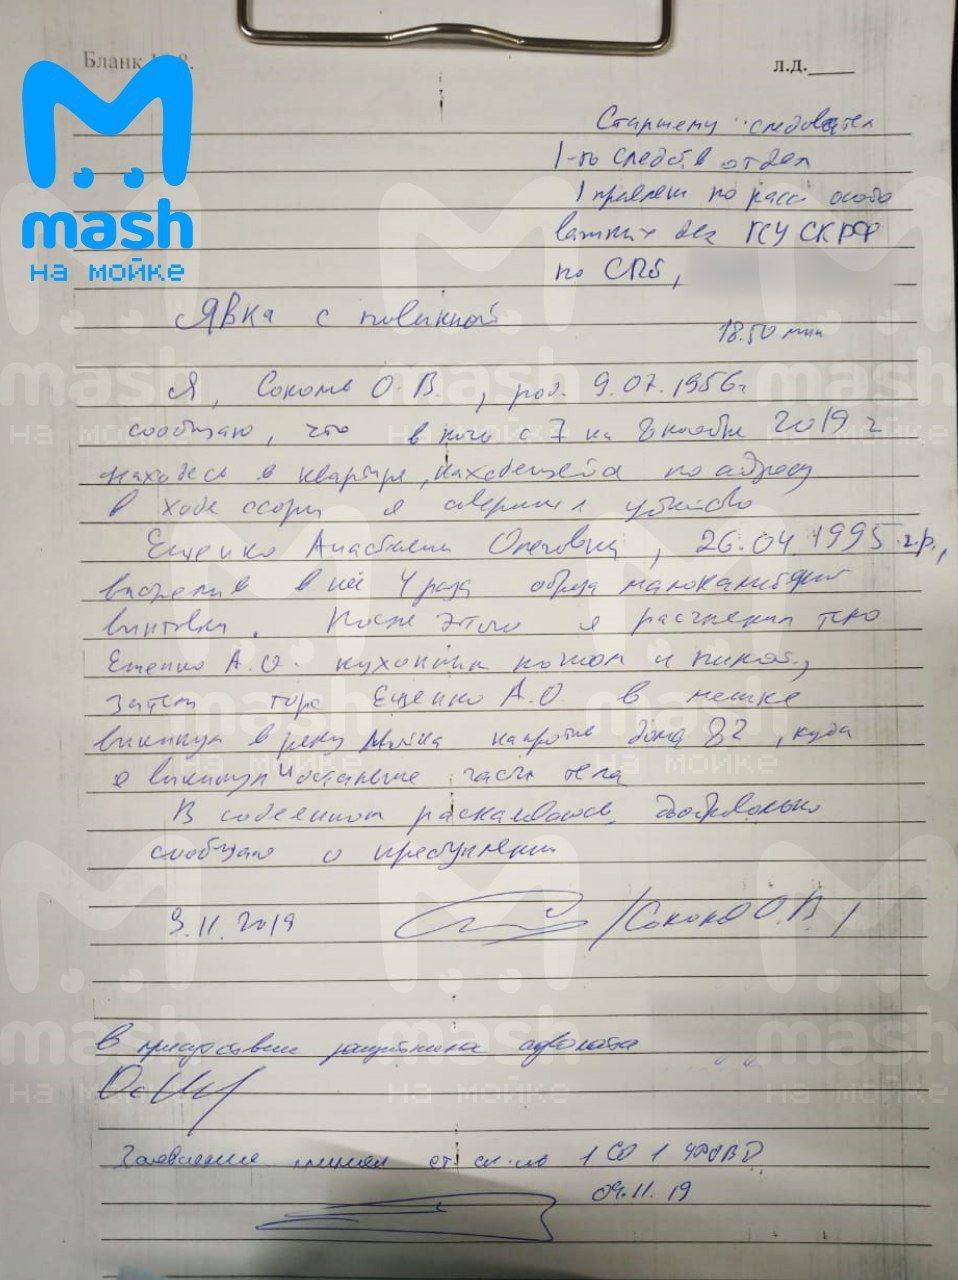 Бланк
л.д.____
mash
на мойке
Старшему следовател
1-го следств отдел
1 управлен по расс особо
важных дел ГСУ СК РФ
по СПб,
Явка с повинной
18.50 мин
Я, Соколов О.В., род. 9.07.1956г
сообщаю, что в ночь с 7 на 8 ноября 2019 г
находясь в квартире, находящейся по адресу
в ходе ссоры я совершил убийство
Ещенко Анастасии Олеговны, 26.04.1995 г.р.,
выстрелив в неё 4 раза обреза малокалиберной
винтовки. После этого я расчленил тело
Ещенко А.О. кухонным ножом и пилой,
затем торс Ещенко А.О. в мешке
выкинул в реку Мойка напротив дома 82, куда
я выкинул и остальные части тела
В содеянном раскаиваюсь, добровольно
сообщаю о преступлении
9.11.2019 /Соколов О.В./
В присутствии защитника адвоката
Заявление принял ст. сл-ль 1 СО 1 УРОВД
09.11.19